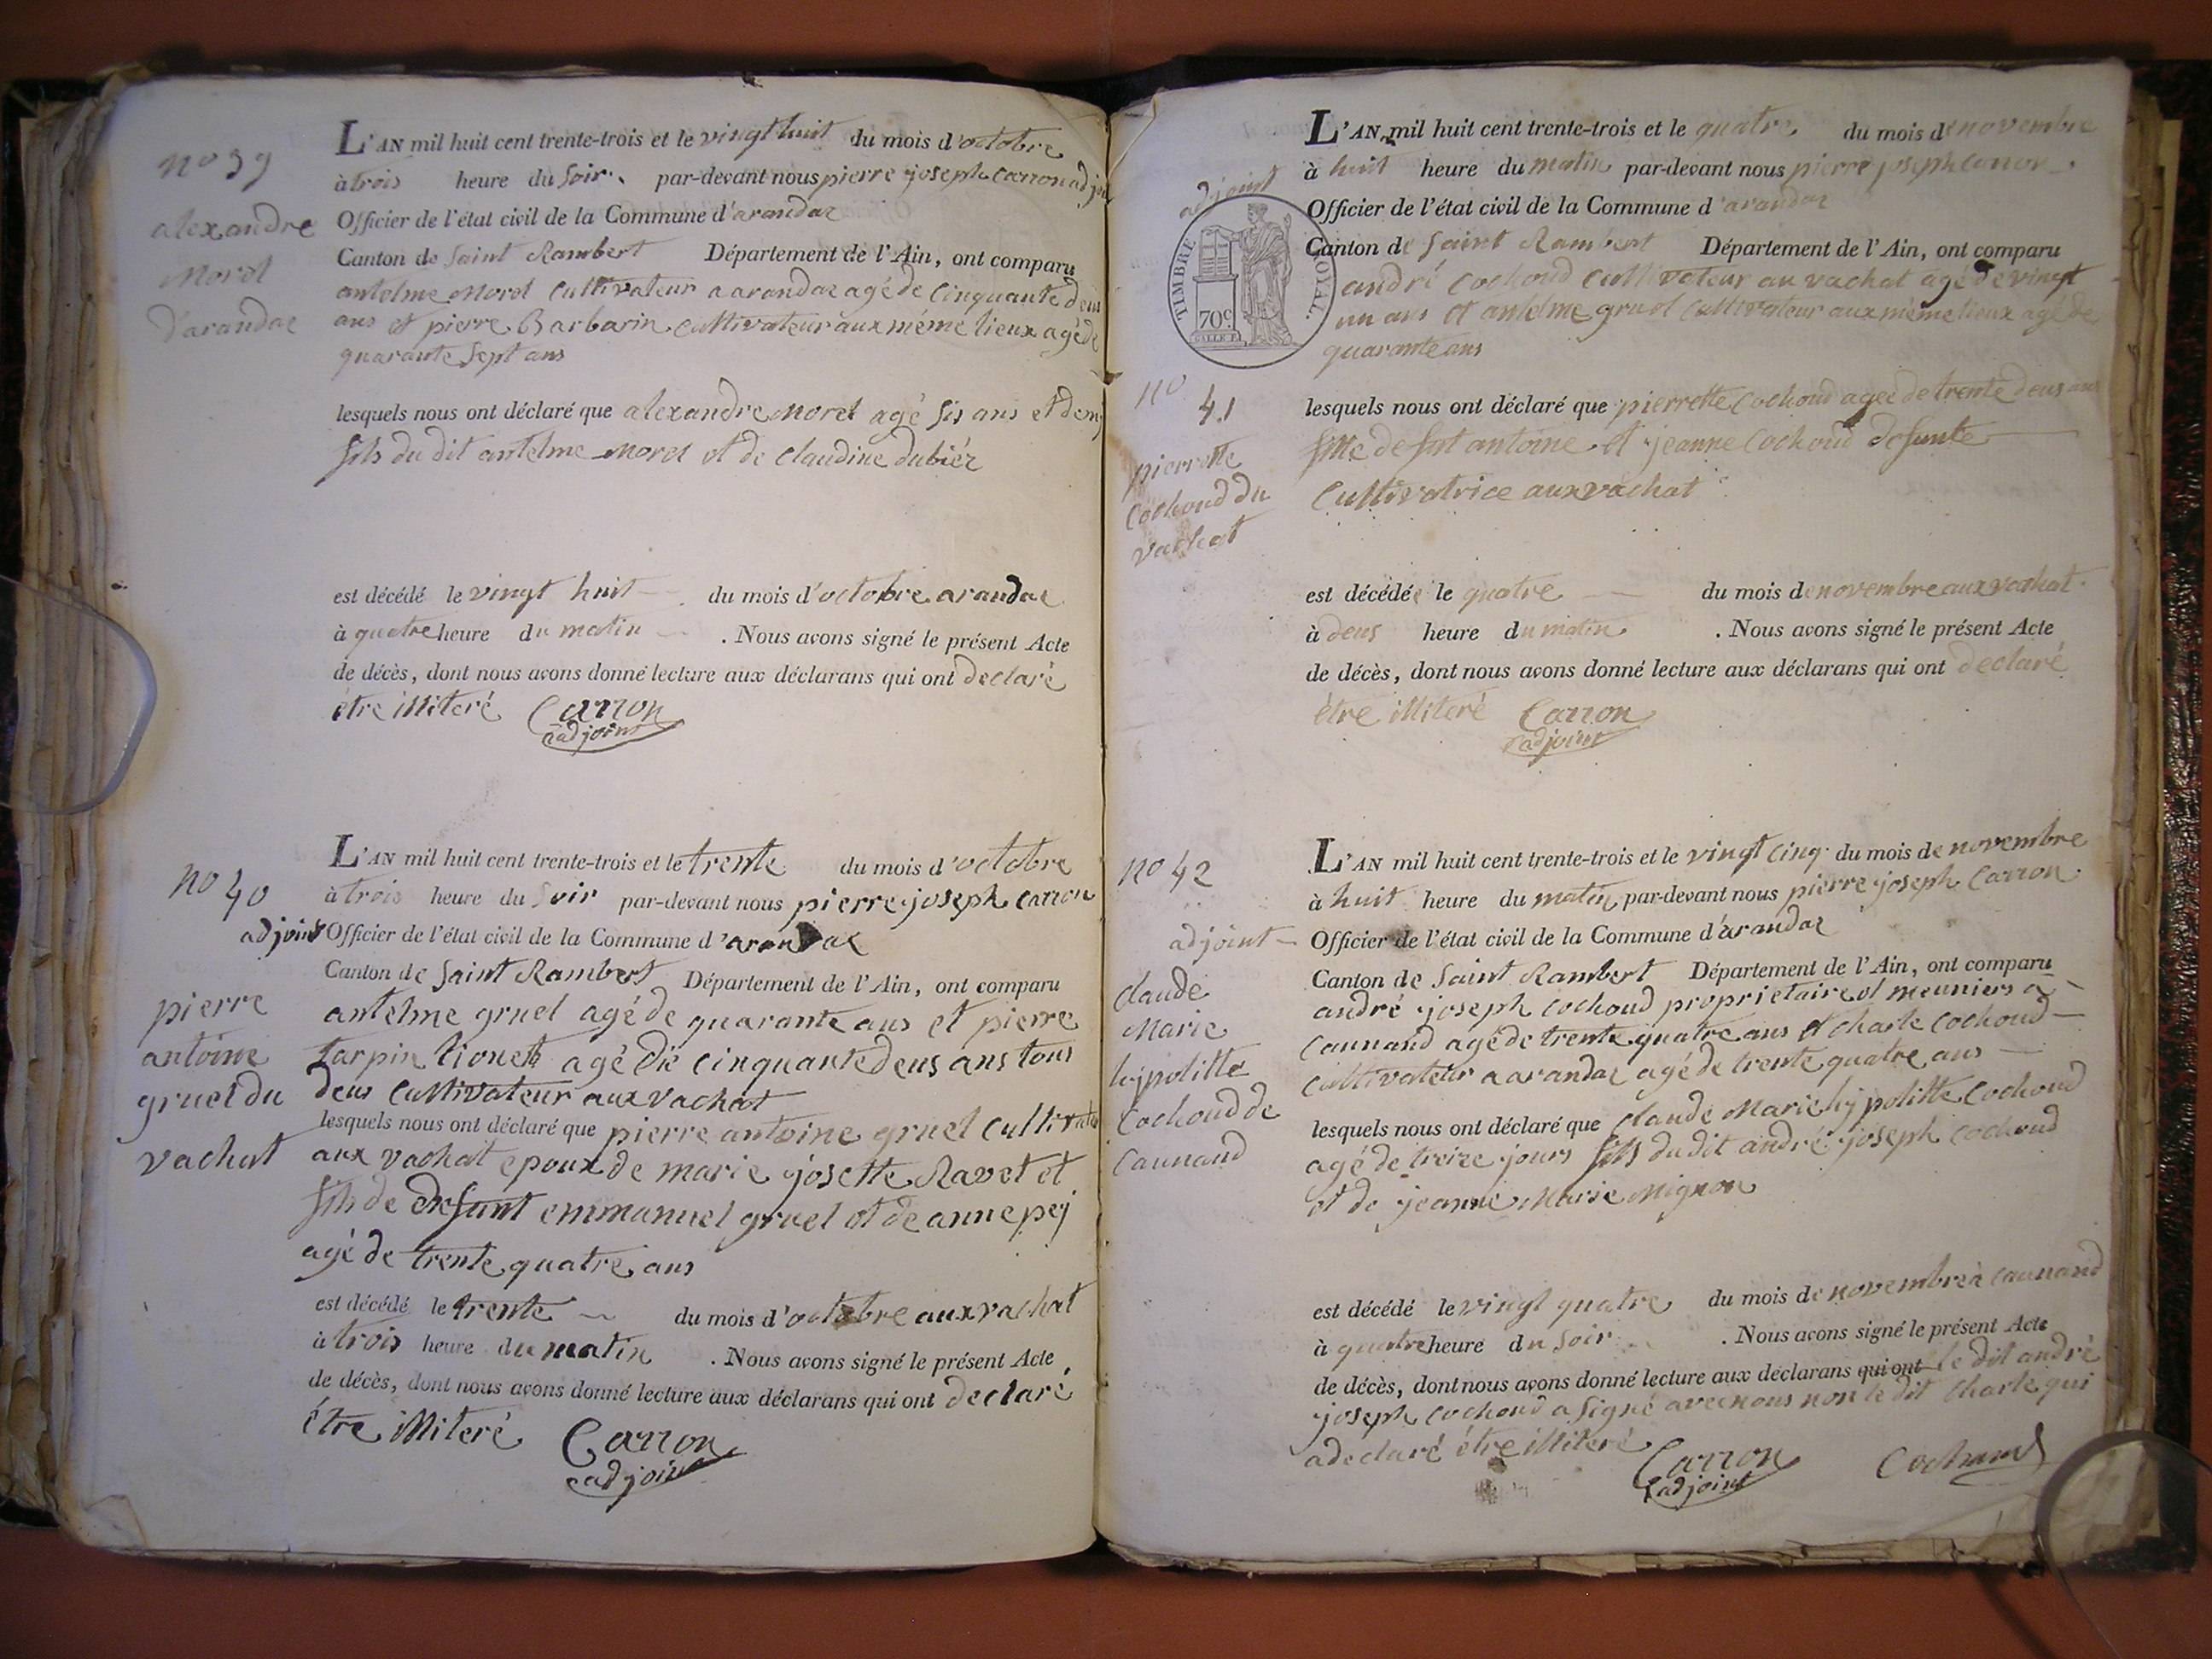 no 39
alexandre
Morel
d'arandas
L'AN mil huit cent trente-trois et le vingt huit du mois d'octobre
à trois heure du soir par-devant nous pierre joseph Carron adjoint
Officier de l'état civil de la Commune d'arandas
Canton de Saint Rambert Département de l'Ain, ont comparu
antelme Morel Cultivateur a arandas agé de Cinquante deus
ans et pierre Barbarin Cultivateur aux méme lieux agé de
quarante Sept ans
lesquels nous ont déclaré que alexandre Morel agé sis ans et demj
fils du dit antelme Morel et de Claudine dubiéz
est décédé le vingt huit du mois d'octobre arandas
à quatre heure du matin . Nous avons signé le présent Acte
de décès, dont nous avons donné lecture aux déclarans qui ont declaré
étre illiteré Carron
adjoint
no 40
adjoint
pierre
antoine
gruel du
vachat
L'AN mil huit cent trente-trois et le trente du mois d'octobre
à trois heure du Soir par-devant nous pierre joseph Carron
Officier de l'état civil de la Commune d'arandas
Canton de Saint Rambert Département de l'Ain, ont comparu
antelme gruel agé de quarante ans et pierre
tarpin lionet agé de cinquante deus ans tous
deus Cultivateur aux vachat
lesquels nous ont déclaré que pierre antoine gruel Cultivateur
aux vachat epoux de marie josette Ravet et
fils de defunt emmanuel gruel et de anne pej
agé de trente quatre ans
est décédé le trente du mois d'octobre aux vachat
à trois heure du matin . Nous avons signé le présent Acte
de décès, dont nous avons donné lecture aux déclarans qui ont declaré
étre illiteré Carron
adjoint
adjoint
TIMBRE ROYAL.
70c
no 41
pierrette
Cochoud du
vachat
L'AN mil huit cent trente-trois et le quatre du mois de novembre
à huit heure du matin par-devant nous pierre joseph Carron
Officier de l'état civil de la Commune d'arandas
Canton de Saint Rambert Département de l'Ain, ont comparu
andré Cochoud Cultivateur au vachat agé de vingt
un ans et antelme gruel Cultivateur aux méme lieux agé de
quarante ans
lesquels nous ont déclaré que pierrette Cochoud agee de trente deus ans
fille de fut antoine et jeanne Cochoud defunte
Cultivatrice aux vachat
est décédée le quatre du mois de novembre aux vachat
à deus heure du matin . Nous avons signé le présent Acte
de décès, dont nous avons donné lecture aux déclarans qui ont declaré
étre illiteré Carron
adjoint
no 42
adjoint
claude
Marie
hypolitte
Cochoud de
Caunand
L'AN mil huit cent trente-trois et le vingt cinq du mois de novembre
à huit heure du matin par-devant nous pierre joseph Carron
Officier de l'état civil de la Commune d'arandas
Canton de Saint Rambert Département de l'Ain, ont comparu
andré joseph Cochoud proprietaire et meuniers a
Caunand agé de trente quatre ans et charle Cochoud
Cultivateur a arandas agé de trente quatre ans
lesquels nous ont déclaré que claude Marie hypolitte Cochoud
agé de treize jours fils du dit andré joseph Cochoud
et de jeanne Marie Mignon
est décédé le vingt quatre du mois de novembre à Caunand
à quatre heure du Soir . Nous avons signé le présent Acte
de décès, dont nous avons donné lecture aux déclarans qui ont le dit andré
joseph Cochoud a signé avec nous non le dit Charle qui
a declaré étre illiteré
Carron Cochoud
adjoint